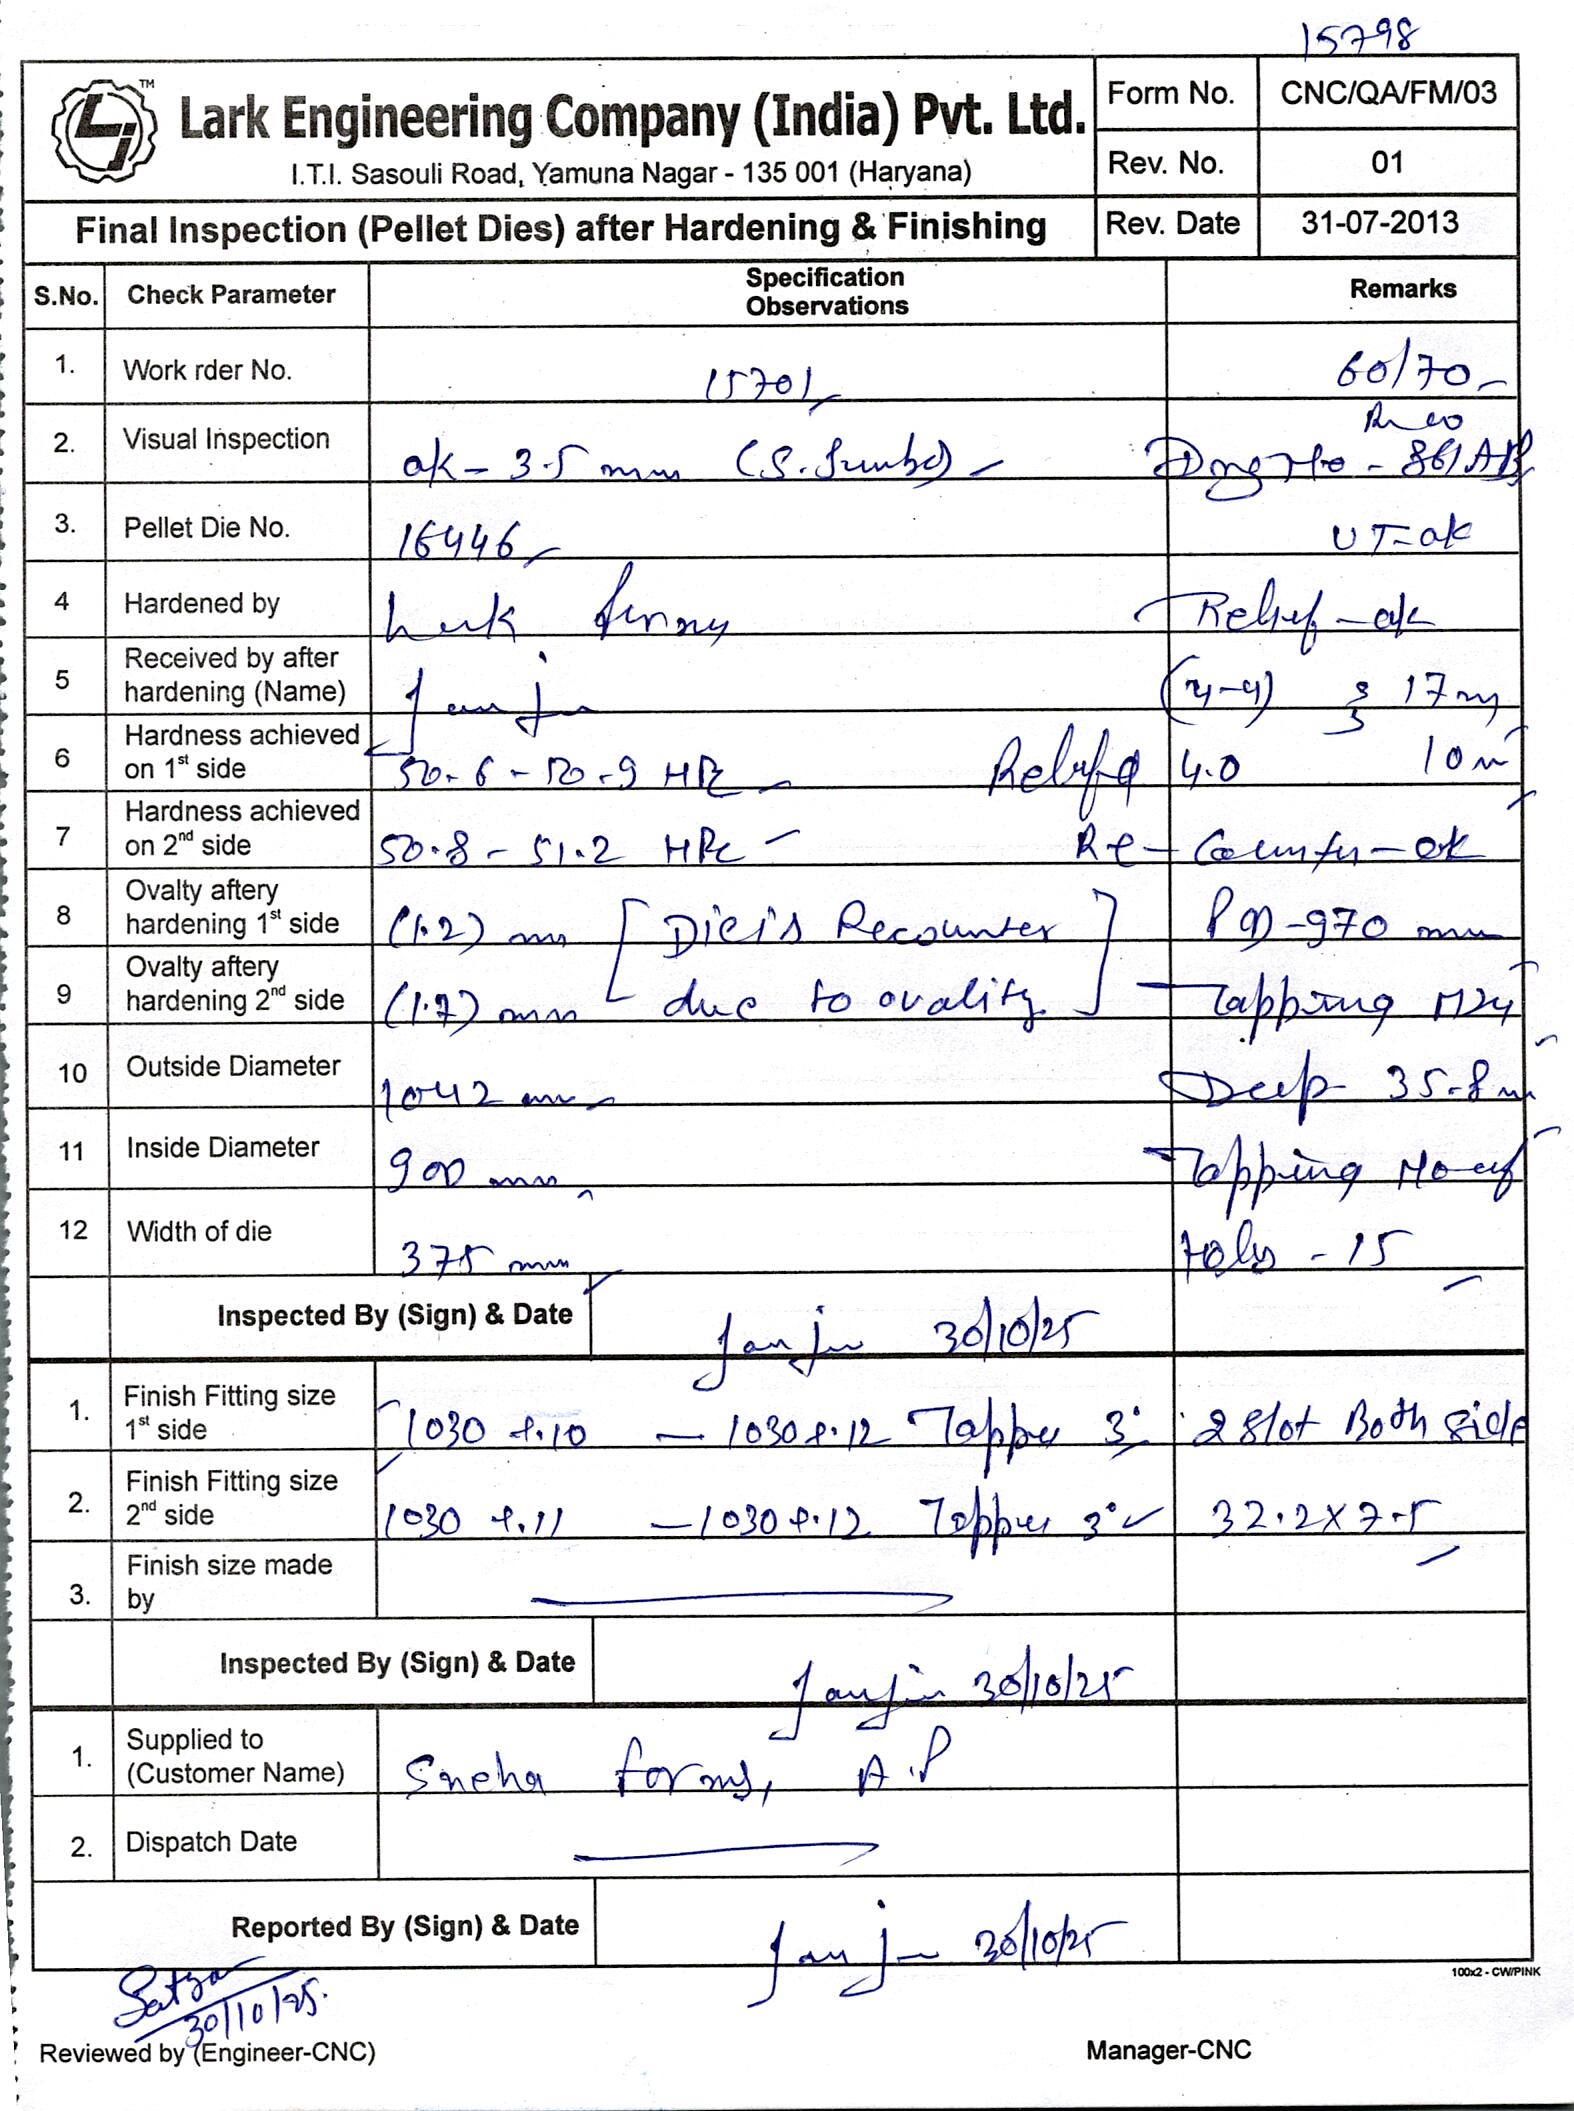 15798
LJ TM
Lark Engineering Company (India) Pvt. Ltd.
I.T.I. Sasouli Road, Yamuna Nagar - 135 001 (Haryana)
Form No. CNC/QA/FM/03
Rev. No. 01
Final Inspection (Pellet Dies) after Hardening & Finishing
Rev. Date 31-07-2013
S.No. Check Parameter Specification Observations Remarks
1. Work rder No. 15701 60/70
2. Visual Inspection ok - 3.5 mm - 861 AB
3. Pellet Die No. 16446 UT-ok
4 Hardened by Relief - ok
5 Received by after hardening (Name) (4-4) 17 m
6 Hardness achieved on 1st side 50.6 - 50.9 HRc Relief φ 4.0 10 m
7 Hardness achieved on 2nd side 50.8 - 51.2 HRc Re - Counter - ok
8 Ovalty aftery hardening 1st side (1.2) mm [ Die is Recounter PCD - 970 mm
9 Ovalty aftery hardening 2nd side (1.7) mm due to ovality ] Tapping M24
10 Outside Diameter 1042 mm Deep 35.8 m
11 Inside Diameter 900 mm Tapping No of
12 Width of die 375 mm Holes - 15
Inspected By (Sign) & Date 30/10/25
1. Finish Fitting size 1st side 1030 +.10 - 1030 +.12 Tapper 3° 2 Slot Both Side
2. Finish Fitting size 2nd side 1030 +.11 - 1030 +.12 Tapper 3° 32.2 x 7.5
3. Finish size made by
Inspected By (Sign) & Date 30/10/25
1. Supplied to (Customer Name) Sneha Forms, A.P
2. Dispatch Date
Reported By (Sign) & Date 30/10/25
100x2 - CW/PINK
30/10/25.
Reviewed by (Engineer-CNC) Manager-CNC